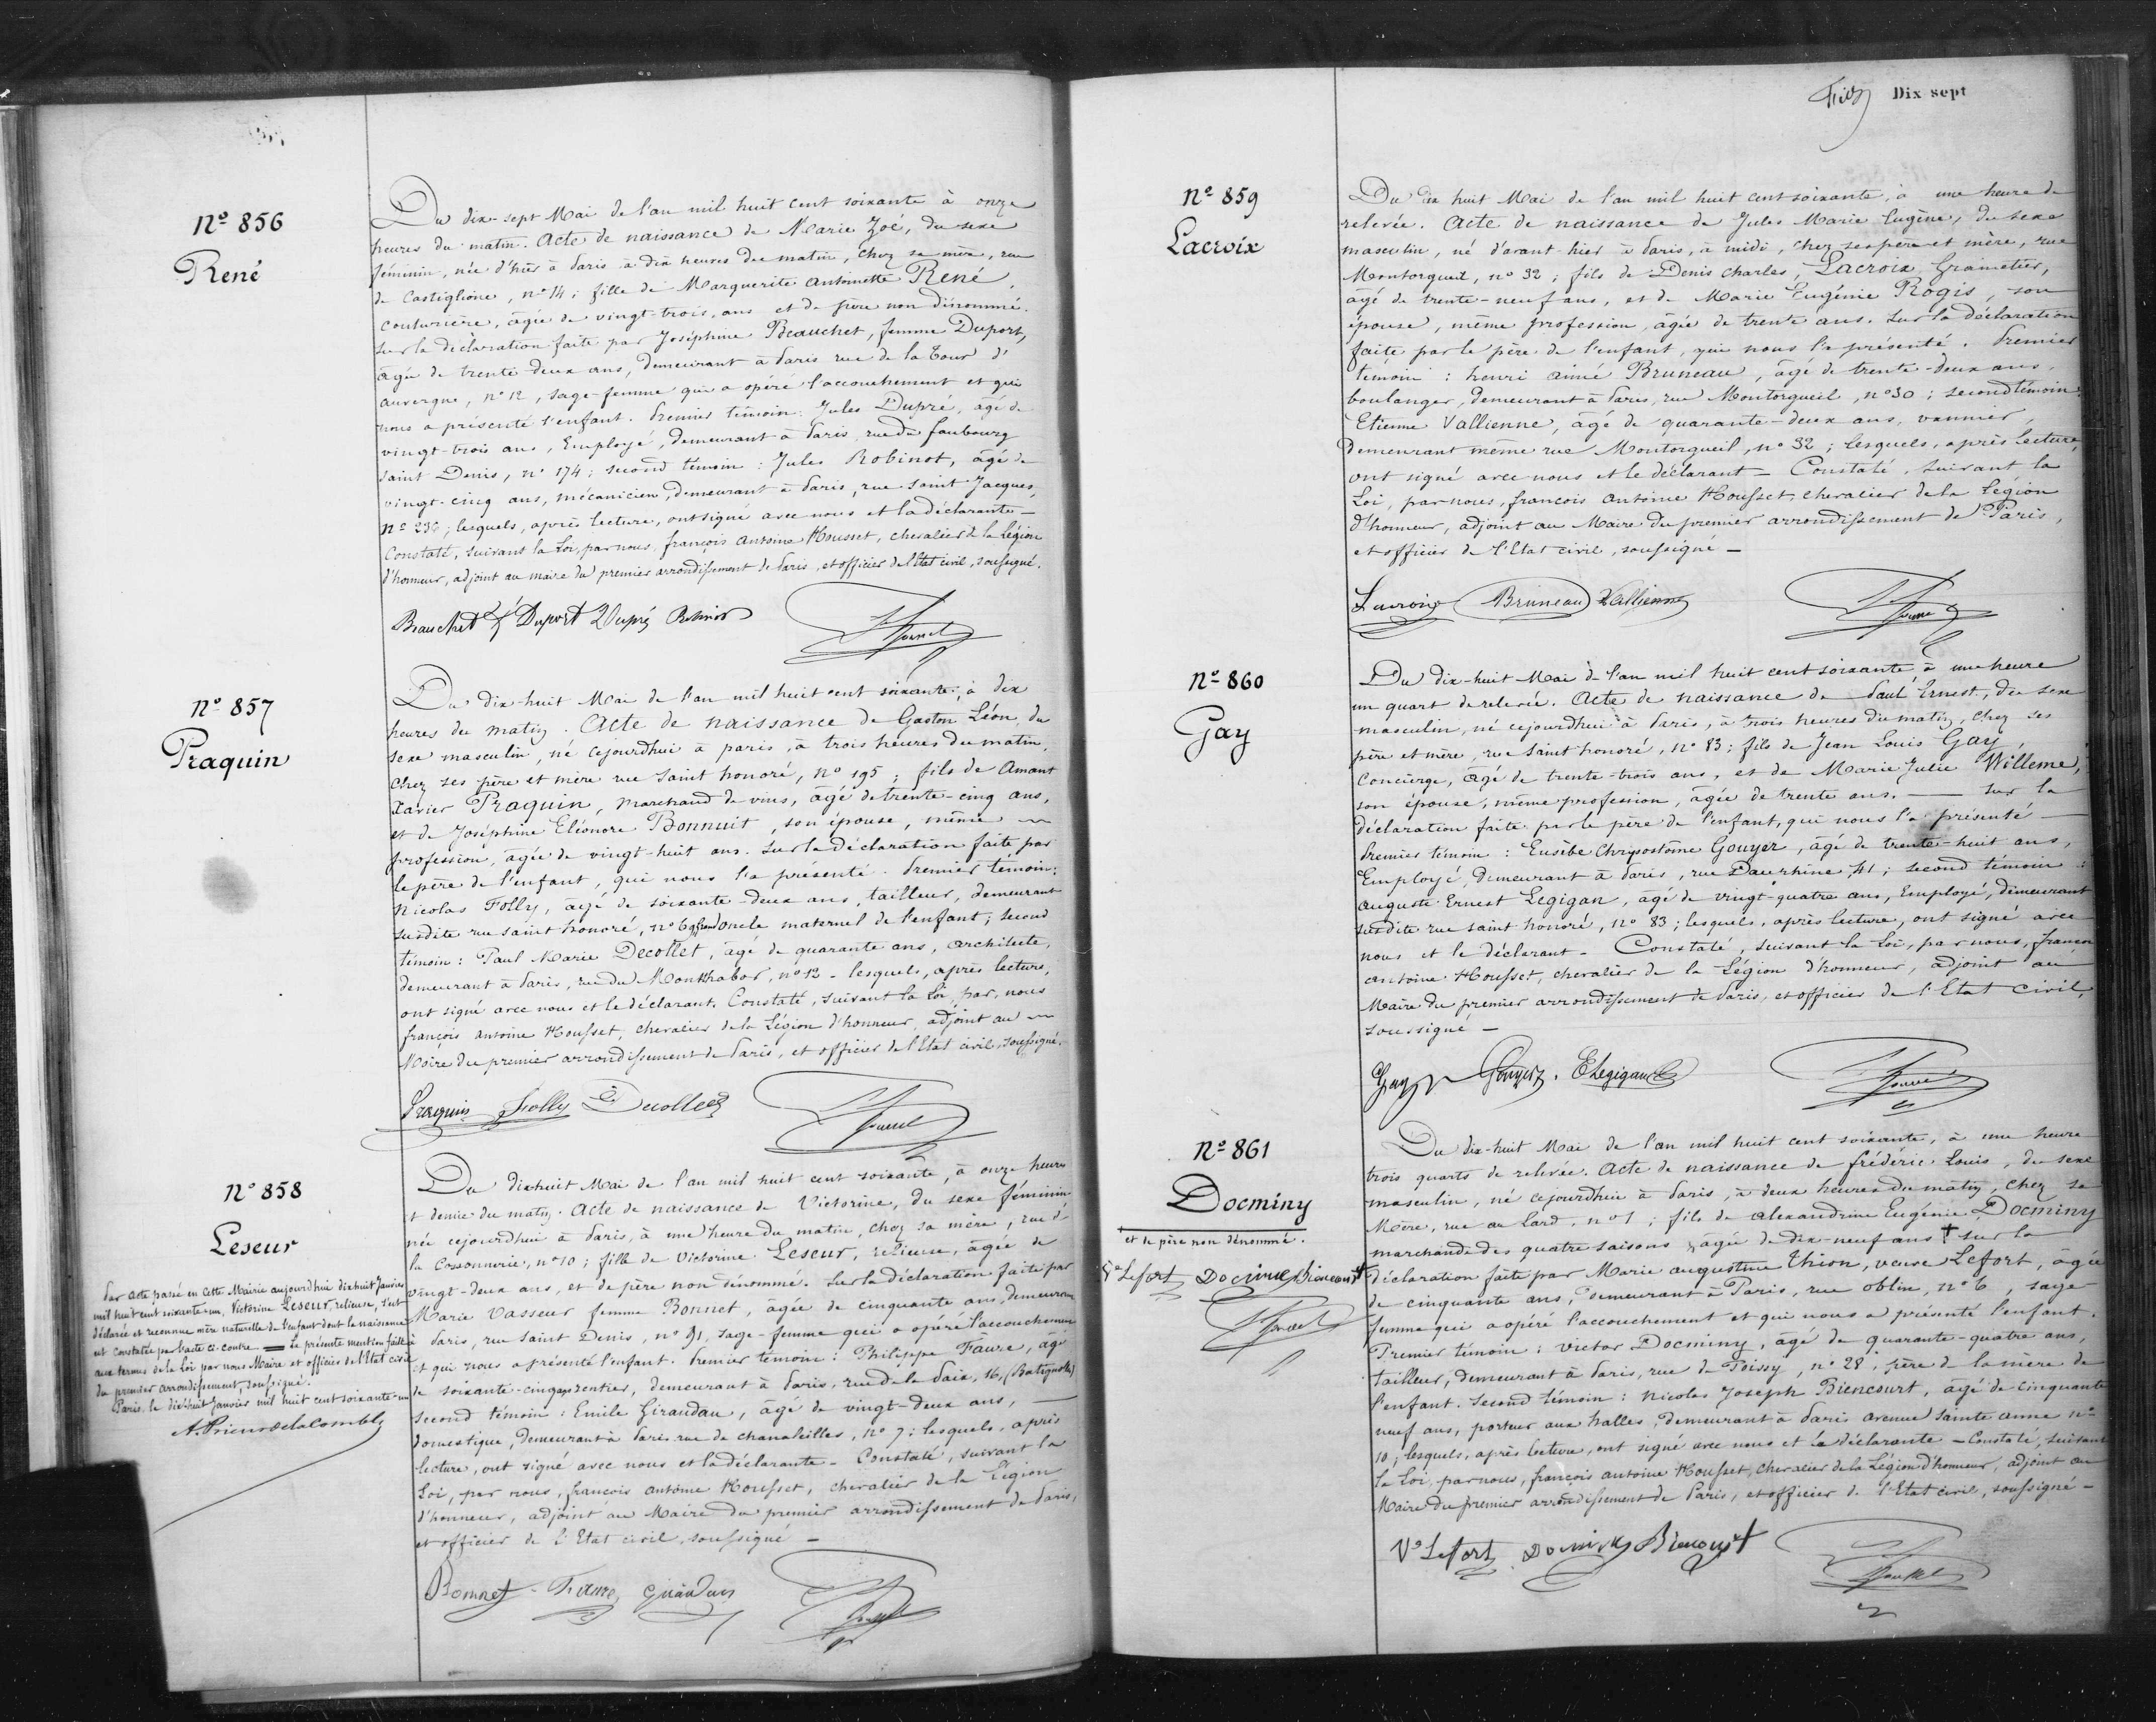 Nº 856
René
Du dix-sept Mai de l'an mil huit cent soixante à onze
heures du matin. Acte de naissance de Marie Zoé, du sexe
féminin, née d'hier à Paris à dix heures du matin, chez sa mère, rue
de Castiglione, nº 14; fille de Marguerite Antoinette René,
couturière, âgée de vingt-trois ans et de père non dénommé.
Sur la déclaration faite par Joséphine Beauchet, femme Duport,
âgée de trente deux ans, demeurant à Paris rue de la Tour d'
auvergne, nº 12, sage-femme qui a opéré l'accouchement et qui
nous a présenté l'enfant. Premier témoin: Jules Dupré, âgé de
vingt-trois ans, Employé, demeurant à Paris, rue du faubourg
Saint Denis, nº 174; second témoin: Jules Robinot, âgé de
vingt-cinq ans, mécanicien, demeurant à Paris, rue Saint-Jacques,
nº ; lesquels, après lecture, ont signé avec nous et la déclarante -
Constaté, suivant la Loi, par nous, françois Antoine Housset, chevalier de la Légion
d'honneur, adjoint au maire du premier arrondissement de Paris, et officier de l'Etat civil, soussigné.
Beauchet fe Duport Dupré Robinot Housset
Nº 857
Praquin
Du dix-huit Mai de l'an mil huit cent soixante, à dix
heures du matin. Acte de naissance de Gaston Léon, du
sexe masculin, né cejourdhui à paris, à trois heures du matin,
chez ses père et mère rue Saint honoré, nº 195; fils de Amant
Xavier Praquin, marchand de vins, âgé de trente-cinq ans,
et de Joséphine Eléonore Bonnuit, son épouse, même
profession, âgée de vingt-huit ans. Sur la déclaration faite par
le père de l'enfant, qui nous l'a présenté. Premier témoin:
Nicolas Folly, âgé de soixante-deux ans, tailleur, demeurant
susdite rue saint honoré, nº grand oncle maternel de l'enfant; second
témoin: Paul Marie Decollet, âgé de quarante ans, architecte,
demeurant à Paris, rue du Montthabor, nº 12 - lesquels, après lecture,
ont signé avec nous et le déclarant. Constaté, suivant la Loi, par nous
françois antoine Housset, chevalier de la Légion d'honneur, adjoint au
Maire du premier arrondissement de Paris, et officier de l'Etat civil, soussigné.
Praquin Folly Decollet Housset
Nº 858
Leseur
Par acte passé en cette Mairie aujourd'hui dix huit Janvier
mil huit cent soixante un, Victorine Leseur, relieuse, s'est
déclarée et reconnue mère naturelle de l'enfant dont la naissance
est constatée par l'acte ci-contre - La présente mention faite
aux termes de la loi par nous Maire et officier de l'Etat civil
du premier arrondissement, soussigné.
Paris, le dix huit Janvier mil huit cent soixante-un
Du dix huit Mai de l'an mil huit cent soixante, à onze heures
et demie du matin. Acte de naissance de Victorine, du sexe féminin
née cejourdhui à Paris, à une heure du matin, chez sa mère, rue de
la Cossonnerie, nº 10; fille de Victorine Leseur, relieuse, âgée de
vingt-deux ans, et de père non dénommé. Sur la déclaration faite par
Marie Vasseur femme Bonnet, âgée de cinquante ans, demeurant
à Paris, rue Saint Denis, nº 91, sage-femme qui a opéré l'accouchement
et qui nous a présenté l'enfant. Premier témoin: Philippe Faure, âgé
de soixante-cinq ans, rentier, demeurant à Paris, rue de la Paix, 16, (Batignolles)
second témoin: Emile Giraudau, âgé de vingt-deux ans,
domestique, demeurant à Paris rue de chanaleilles, nº 7; lesquels, après
lecture, ont signé avec nous et la déclarante - Constaté, suivant la
Loi, par nous, françois antoine Housset, chevalier de la Légion
d'honneur, adjoint au Maire du premier arrondissement de Paris,
et officier de l'Etat civil, soussigné -
Bonnet Faure Giraudau Housset
Dix sept
Nº 859
Lacroix
Du dix huit Mai de l'an mil huit cent soixante, à une heure de
relevée. Acte de naissance de Jules Marie Eugène, du sexe
masculin, né d'avant-hier à Paris, à midi, chez ses père et mère, rue
Montorgueil, nº 32; fils de Denis Charles, Lacroix, Grainetier,
âgé de trente-neuf ans, et de Marie Eugénie Rogis, son
épouse, même profession, âgée de trente ans. Sur la déclaration
faite par le père de l'enfant, qui nous l'a présenté. Premier
témoin: henri aimé Bruneau, âgé de trente-deux ans,
boulanger, demeurant à Paris, rue Montorgueil, nº 30; second témoin:
Etienne Vallienne, âgé de quarante-deux ans, vannier,
demeurant même rue Montorgueil, nº 32; lesquels, après lecture,
ont signé avec nous et le déclarant - Constaté, suivant la
Loi, par nous, francois antoine Housset, chevalier de la Légion
d'honneur, adjoint au Maire du premier arrondissement de Paris,
et officier de l'Etat civil, soussigné -
Lacroix Bruneau Vallienne Housset
Nº 860
Gay
Du dix-huit Mai de l'an mil huit cent soixante, à une heure
un quart de relevée. Acte de naissance de Paul Ernest, du sexe
masculin, né cejourdhui à Paris, à trois heures du matin, chez ses
père et mère, rue Saint honoré, nº 83; fils de Jean Louis Gay,
Concierge, âgé de trente-trois ans, et de Marie Julie Willeme,
son épouse, même profession, âgée de trente ans. - Sur la
déclaration faite par le père de l'enfant, qui nous l'a présenté -
Premier témoin: Eusèbe Chrysostôme Gouyer, âgé de trente-huit ans,
Employé, demeurant à Paris, rue Dauphine, 41; second témoin:
auguste Ernest Legigan, âgé de vingt-quatre ans, Employé, demeurant
susdite rue saint honoré, nº 83; lesquels, après lecture, ont signé avec
nous et le déclarant - Constaté, suivant la Loi, par nous, françois
antoine Housset, chevalier de la Légion d'honneur, adjoint au
Maire du premier arrondissement de Paris, et officier de l'Etat civil,
soussigné -
Gay Gouyer. E Legigan Housset
Nº 861
Docminy
et de père non dénommé.
Ve Lefort Docminy Biencourt
Housset
Du dix-huit Mai de l'an mil huit cent soixante, à une heure
trois quarts de relevée. Acte de naissance de frédéric Louis, du sexe
masculin, né cejourdhui à Paris, à deux heures du matin, chez sa
Mère, rue au Lard, nº 1; fils de alexandrine Eugénie Docminy
marchande des quatre saisons, âgée de dix-neuf ans † sur la
déclaration faite par Marie augustine Thion, veuve Lefort, âgée
de cinquante ans, demeurant à Paris, rue oblin, nº 6, sage
femme qui a opéré l'accouchement et qui nous a présenté l'enfant.
Premier témoin: victor Docminy, âgé de quarante-quatre ans,
tailleur, demeurant à Paris, rue de Poissy, nº 28, père de la mère de
l'enfant. Second témoin: Nicolas Joseph Biencourt, âgé de cinquante
neuf ans, porteur aux halles, demeurant à Paris avenue Sainte anne nº
10; lesquels, après lecture, ont signé avec nous et la déclarante - Constaté, suivant
la Loi, par nous, françois antoine Housset, chevalier de la Légion d'honneur, adjoint au
Maire du premier arrondissement de Paris, et officier de l'Etat civil, soussigné -
Ve Lefort Docminy Biencourt Housset